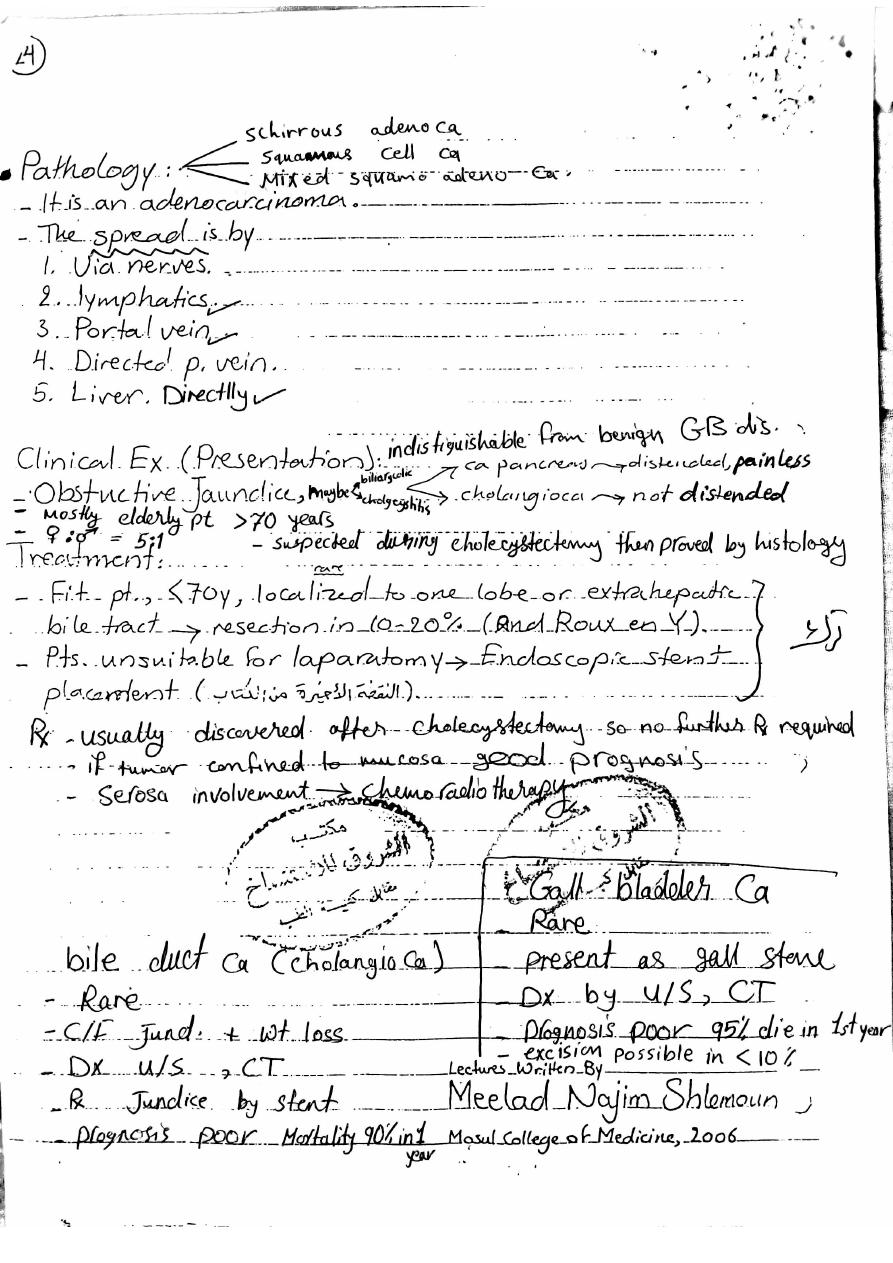 24
schirrous adenoca
• Pathology: squamous cell ca
Mixed squamo adeno Ca.
- It is an adenocarcinoma.
- The spread is by
1. Via nerves.
2. lymphatics.
3. Portal vein
4. Directed p. vein.
5. Liver. Directlly
indistiguishable from benign GB dis.
Clinical Ex. (Presentation): ca pancreas → distended, painless
- Obstuctive Jaundice, maybe biliary colic cholgcystitis → cholangioca → not distended
- mostly elderly pt >70 years
- ♀:♂ = 5:1 - suspected during cholecystectomy then proved by histology
Treatment: rare
- Fit pt., <70y, localized to one lobe or extrahepatic
bile tract → resection in 10-20% (And Roux en Y).
- Pts. unsuitable for laparatomy → Endoscopic stent
placement (النقطة الأخيرة من الكتاب.)
Rx - usually discovered after cholecystectomy so no further Rx required
- if tumor confined to mucosa good prognosis
- Serosa involvement → chemo radio therapy
مكتب
الشروق للاستنساخ
مقابل كلية الطب
مكتب
الشروق
مقابل
Gall bladder Ca
- Rare
- present as gall stone
- Dx by U/S, CT
- prognosis poor 95% die in 1st year
- excision possible in <10%
bile duct Ca (cholangio Ca)
- Rare
- C/F Jund. + wt loss
- Dx U/S, CT
- Rx Jundice by stent
- prognosis poor Mortality 90% in 1
year
Lectures Written By
Meelad Najim Shlemoun
Mosul College of Medicine, 2006